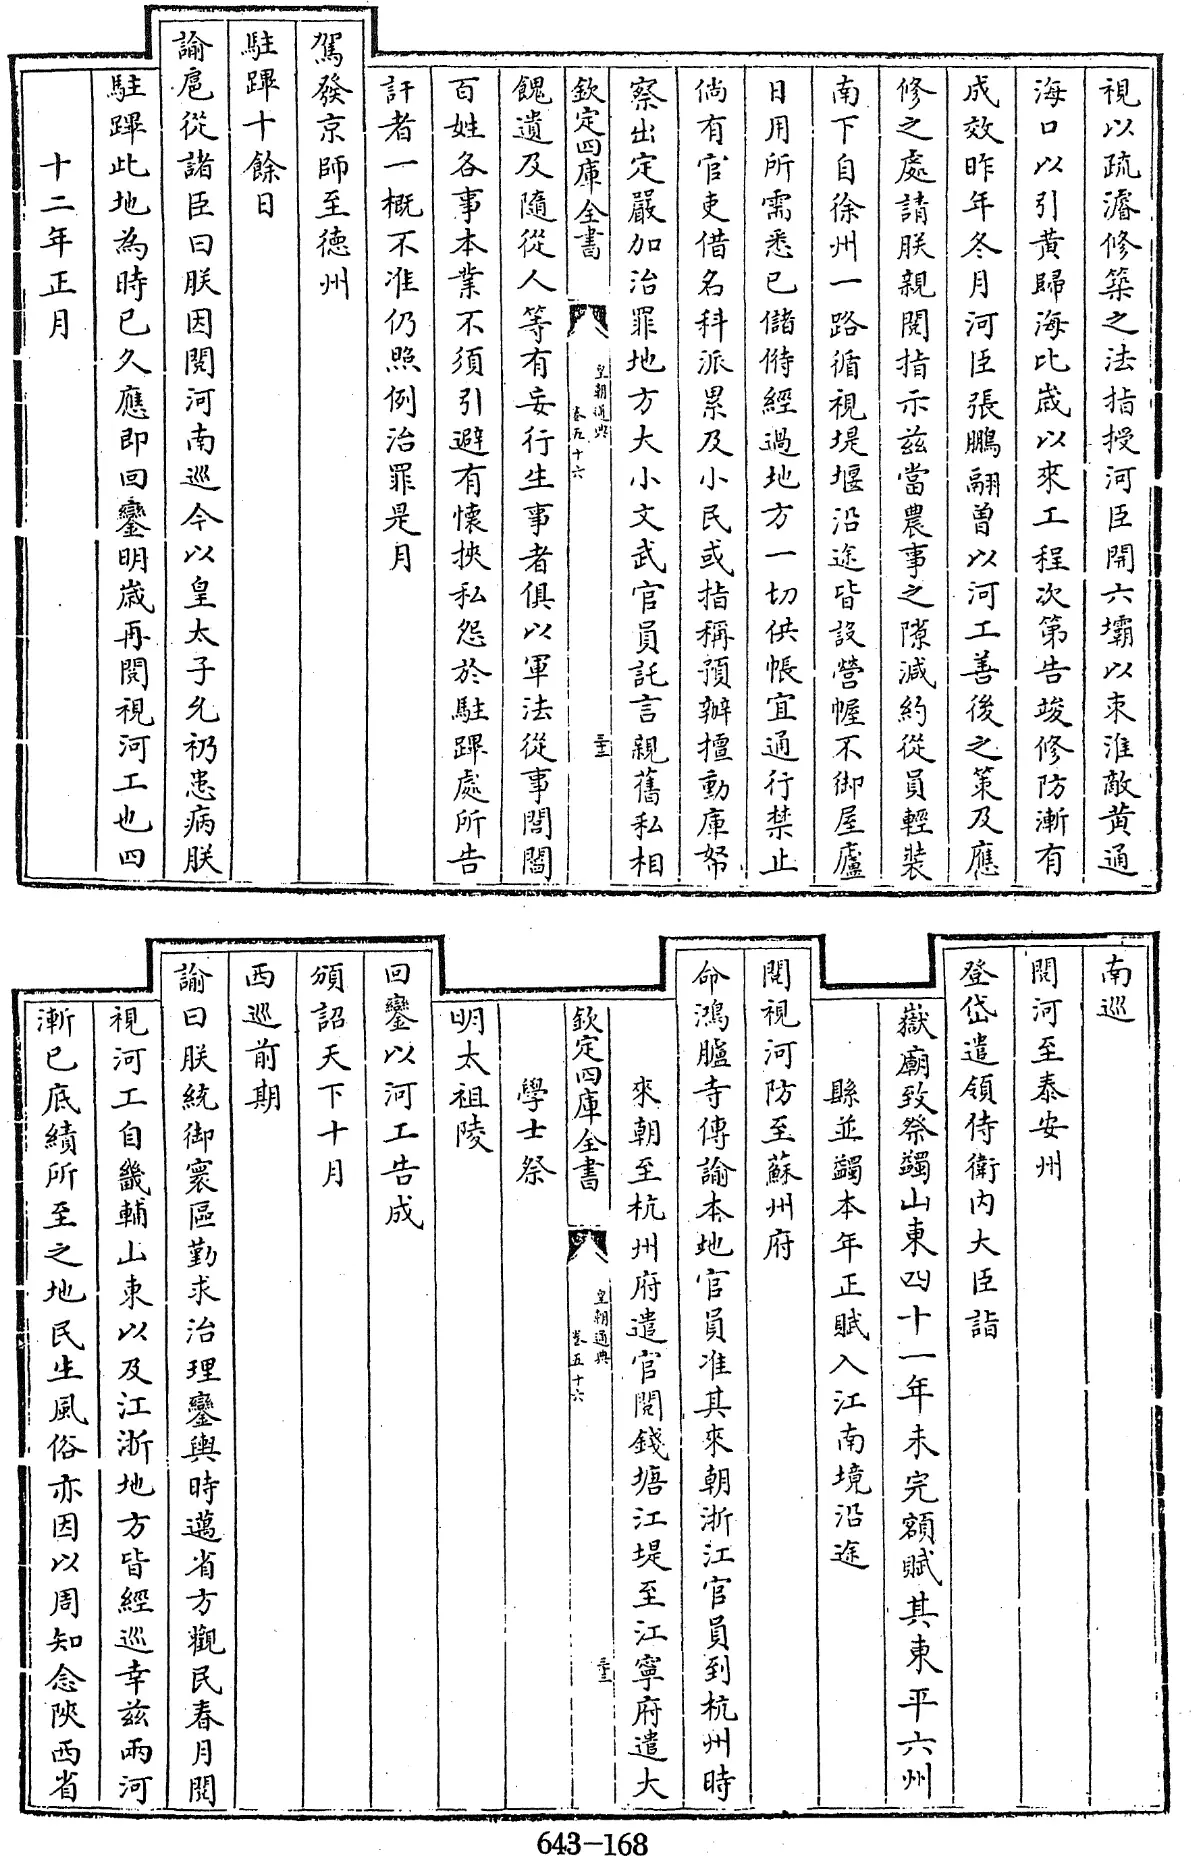 視以疏濬修築之法指授河臣開六壩以束淮敵黄通
海口以引黄歸海比歲以來工程次第告竣修防漸有
成效昨年冬月河臣張鵬翮曽以河工善後之策及應
修之處請朕親閱指示兹當農事之隙減約從員輕裝
南下自徐州一路循視堤堰沿途皆設營幄不御屋廬
日用所需悉已儲偫經過地方一切供帳宜通行禁止
倘有官吏借名科派累及小民或指稱預辦擅動庫帑
察出定嚴加治罪地方大小文武官員託言親舊私相
欽定四庫全書
皇朝通典
卷五十六
三十二
餽遺及隨從人等有妄行生事者俱以軍法從事閭閻
百姓各事本業不須引避有懷挾私怨於駐蹕處所告
訐者一概不准仍照例治罪是月
駕發京師至德州
駐蹕十餘日
諭扈從諸臣曰朕因閱河南巡今以皇太子允礽患病朕
駐蹕此地為時已久應即回鑾明歲再閱視河工也四
十二年正月
南巡
閱河至泰安州
登岱遣領侍衛内大臣詣
嶽廟致祭蠲山東四十一年未完額賦其東平六州
縣並蠲本年正賦入江南境沿途
閱視河防至蘇州府
命鴻臚寺傳諭本地官員准其來朝浙江官員到杭州時
來朝至杭州府遣官閱錢塘江堤至江寧府遣大
欽定四庫全書
皇朝通典
卷五十六
三十三
學士祭
明太祖陵
回鑾以河工告成
頒詔天下十月
西巡前期
諭曰朕統御寰區勤求治理鑾輿時邁省方觀民春月閱
視河工自畿輔山東以及江浙地方皆經巡幸兹兩河
漸已底績所至之地民生風俗亦因以周知念陝西省
643-168